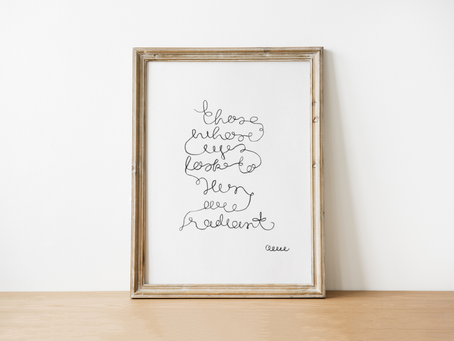 those
whose
eyes
look to
Him
are
radiant